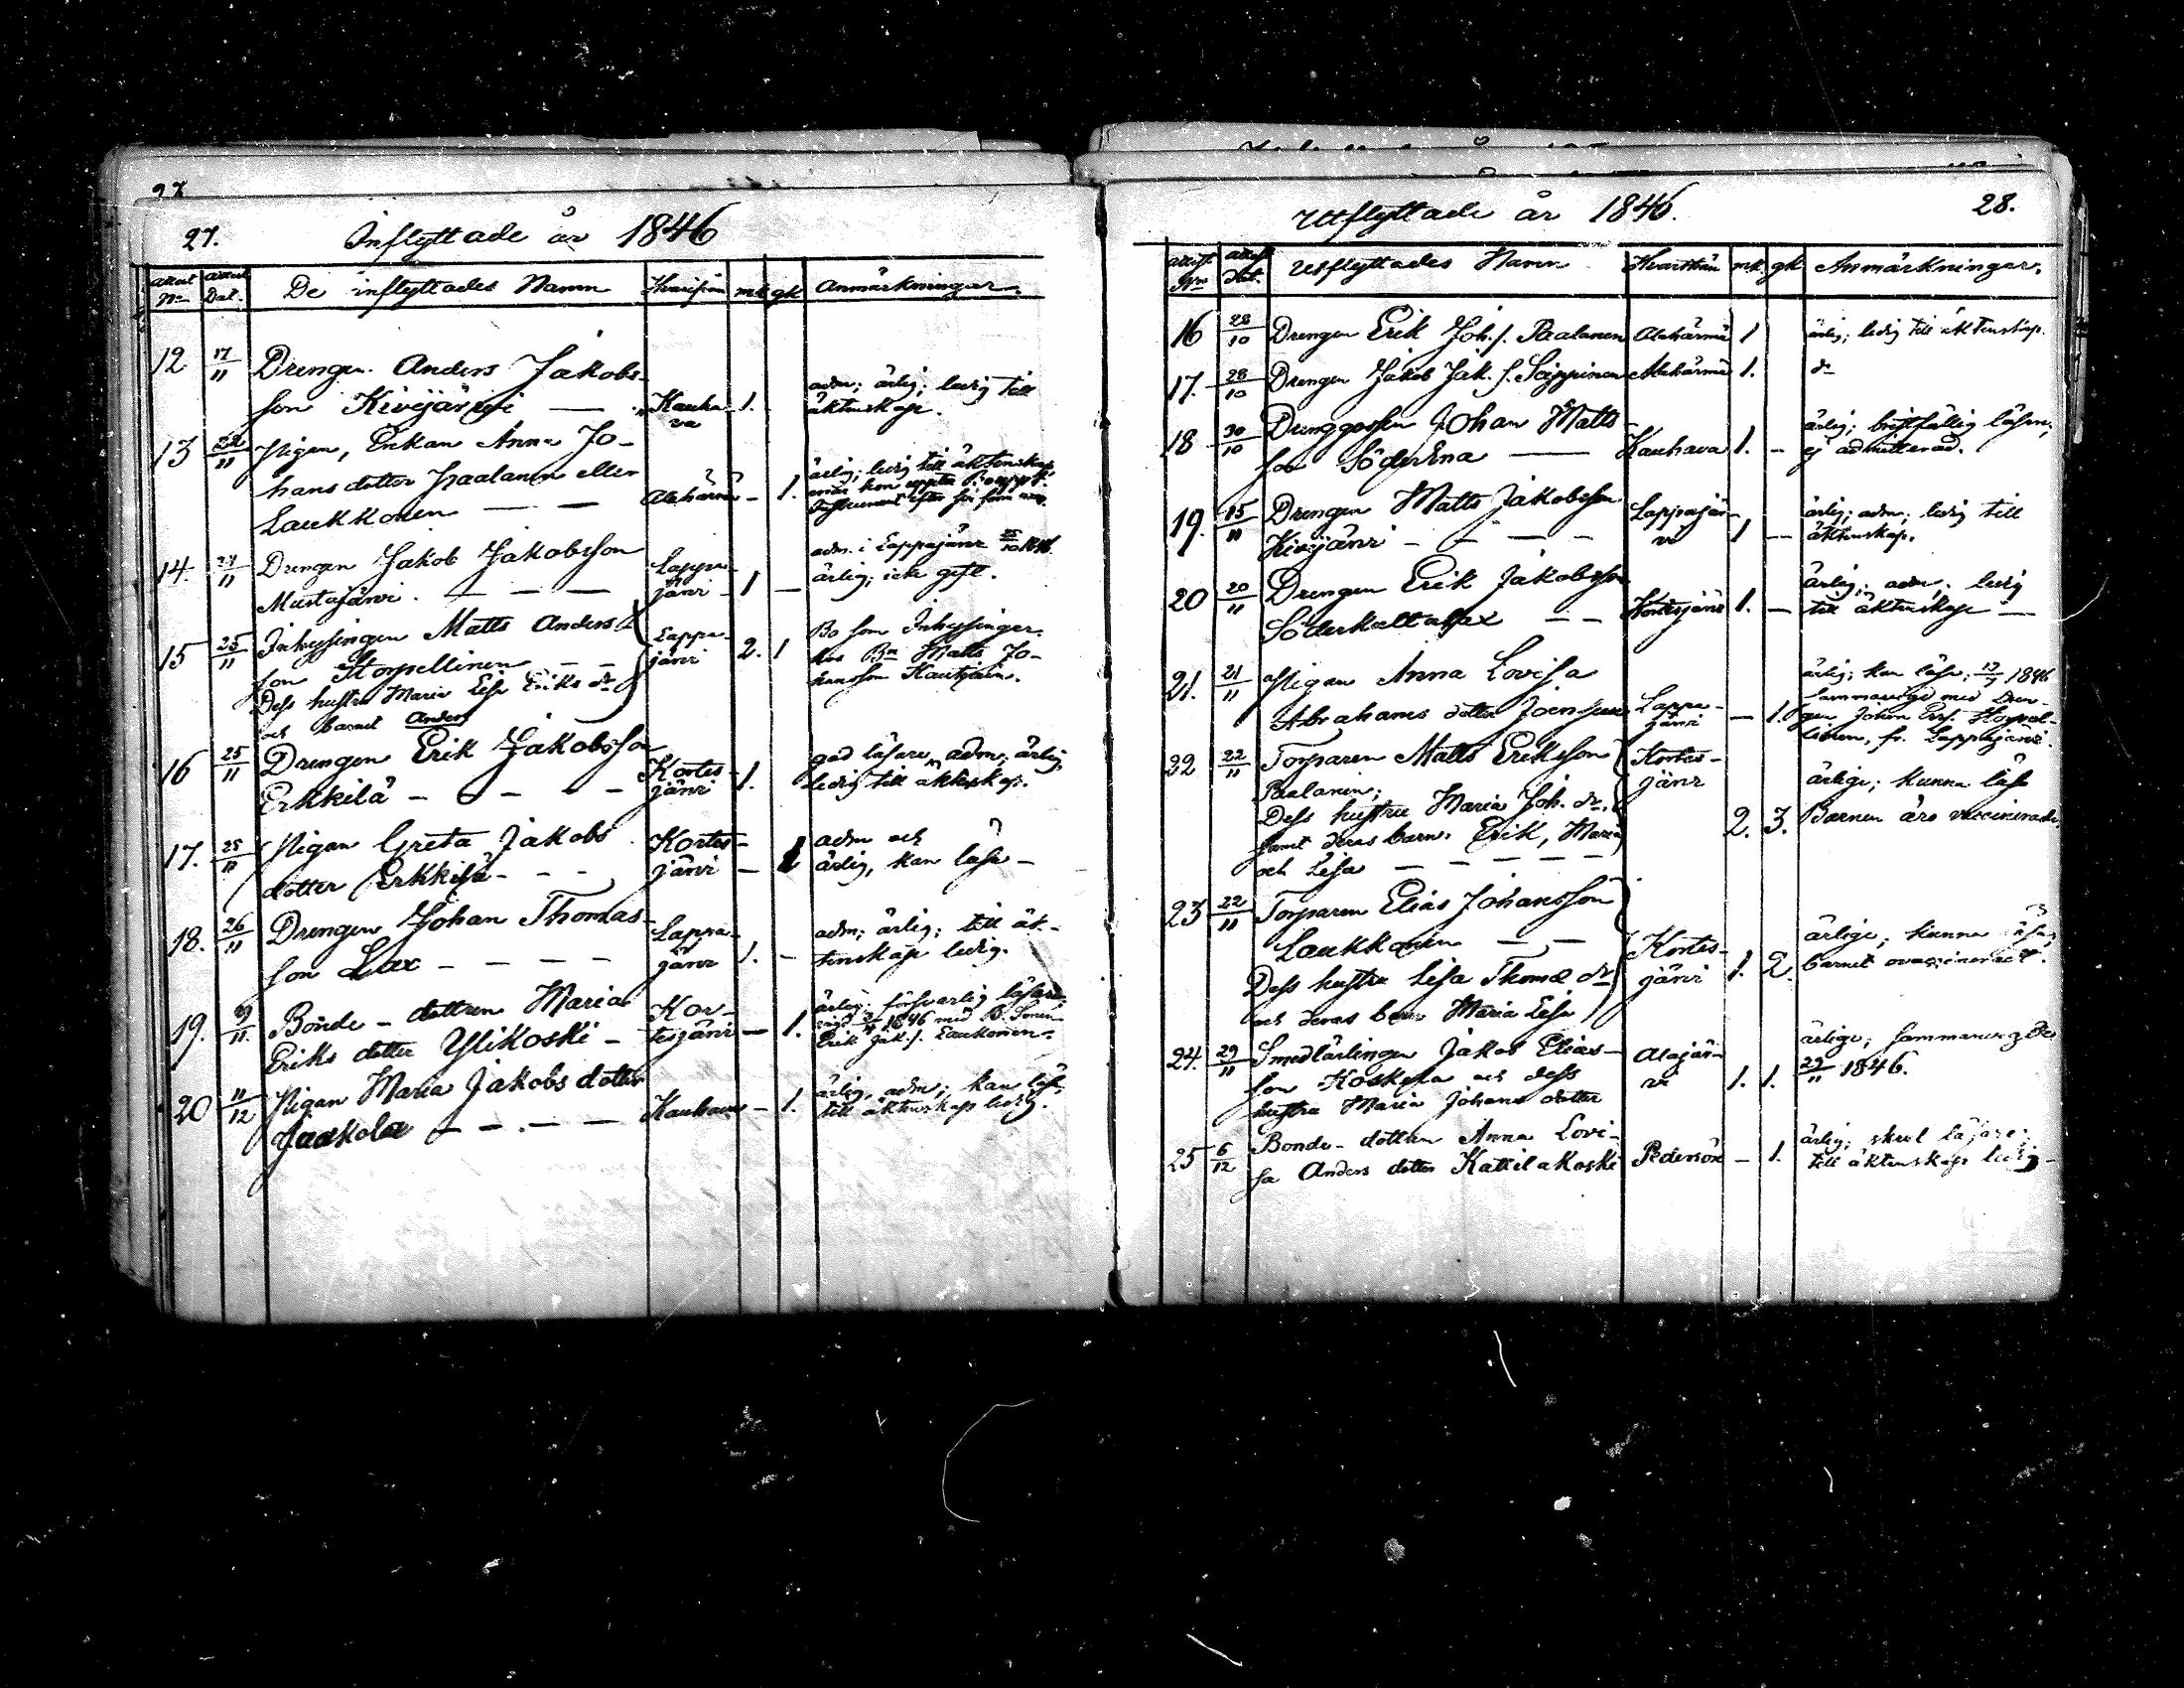 27.
Inflyttade år 1846
Attest No
Attest Dat.
De inflyttades Namn
Hvarifrån
mk
gk
Anmärkningar.
12 17/11 Drengen Anders Jakobs-
son Kivijärvi — Kauha- 1. adm; ärlig; ledig till
va äktenskap.
13 22/11 Pigan, Enkan Anna Jo-
hans dotter Paalanen eller ärlig; ledig till äktenskap,
Laukkonen — — Alahärmä – 1.
14. 24/11 Drengen Jakob Jakobsson Lappa- adm. i Lappajärvi 1846.
Mustajärvi. — — — järvi 1 — ärlig; icke gift.
15 25/11 Inhysingen Matts Anders- Lappa- 2. 1 Bo som Inhysingar
son Korpellinen — — järvi hos Bn Matts Jo-
Dess hustru Maria Lisa Eriks dr hansson
och barnet Anders
16 25/11 Drengen Erik Jakobsson Kortes- god läsare, adm; ärlig,
Erkkilä — — — — järvi 1. ledig till äktenskap.
17. 25/11 Pigan Greta Jakobs Kortes- adm och
dotter Erkkilä — — järvi — 1 ärlig, kan läsa —
18. 26/11 Drengen Johan Thomas- Lappa- adm; ärlig; till äk-
son Lax — — — — järvi 1. – tenskap ledig.
19. Bonde-dottren Maria Kor- ärlig; försvarlig läsare,
Eriks dotter Ylikoski – tesjärvi — 1. 1846 med
Erik Jak. s. Laukonen.
20 11/12 Pigan Maria Jakobs dotter ärlig, adm; kan läsa,
Jaakola — — — — Kauhava – 1. till äktenskap ledig.
Utflyttade år 1846.
28.
Attest No
Attest Dat.
Utflyttades Namn
Hvarthän
mk
gk
Anmärkningar.
16 28/10 Drengen Erik Joh. s. Paalanen Alahärmä 1 ärlig; ledig till äktenskap.
17. 28/10 Drengen Jakob Jak. s. Seippinen Alahärmä 1. do
18 30/10 Drenggossen Johan Matts- ärlig; bristfällig läsare,
son Söderena — Kauhava 1. – ej admitterad.
19. 15/11 Drengen Matts Jakobsson Lappajär- ärlig; adm; ledig till
Kivijärvi — — — — vi 1 — äktenskap.
20 20/11 Drengen Erik Jakobsson ärlig; adm; ledig
Söderkaltalax — — Kortesjärvi 1. — till äktenskap —
21. 21/11 Pigan Anna Lovisa ärlig; kan läsa; 1846
Abrahams dotter Joensuu Lappa- sammanvigd med Dren-
järvi — 1. gen Johan Korpel-
linen, fr. Lappajärvi.
22 22/11 Torparen Matts Eriksson Kortes-
Paalanen; järvi ärlige; kunna läsa
Dess hustru Maria Joh. dr, 2. 3. Barnen äro vaccinerade
samt deras barn: Erik, Maria
och Lisa — — — — —
23 22/11 Torparen Elias Johansson
Laukkonen — — Kortes- ärlige; kunna läsa;
Dess hustru Lisa Thomæ dr järvi 1. 2. barnet ovaccinerat.
och deras barn Maria Lisa
24. 29/11 Smedlärlingen Jakob Elias- Alajär- ärlige; sammanvigde
son Koskela och dess vi 1. 1. 29/11 1846.
hustru Maria Johans dotter
25 6/12 Bonde-dottren Anna Lovi- ärlig; skral läsare;
sa Anders dotter Kattilakoski Pedersöre — 1. till äktenskap ledig –